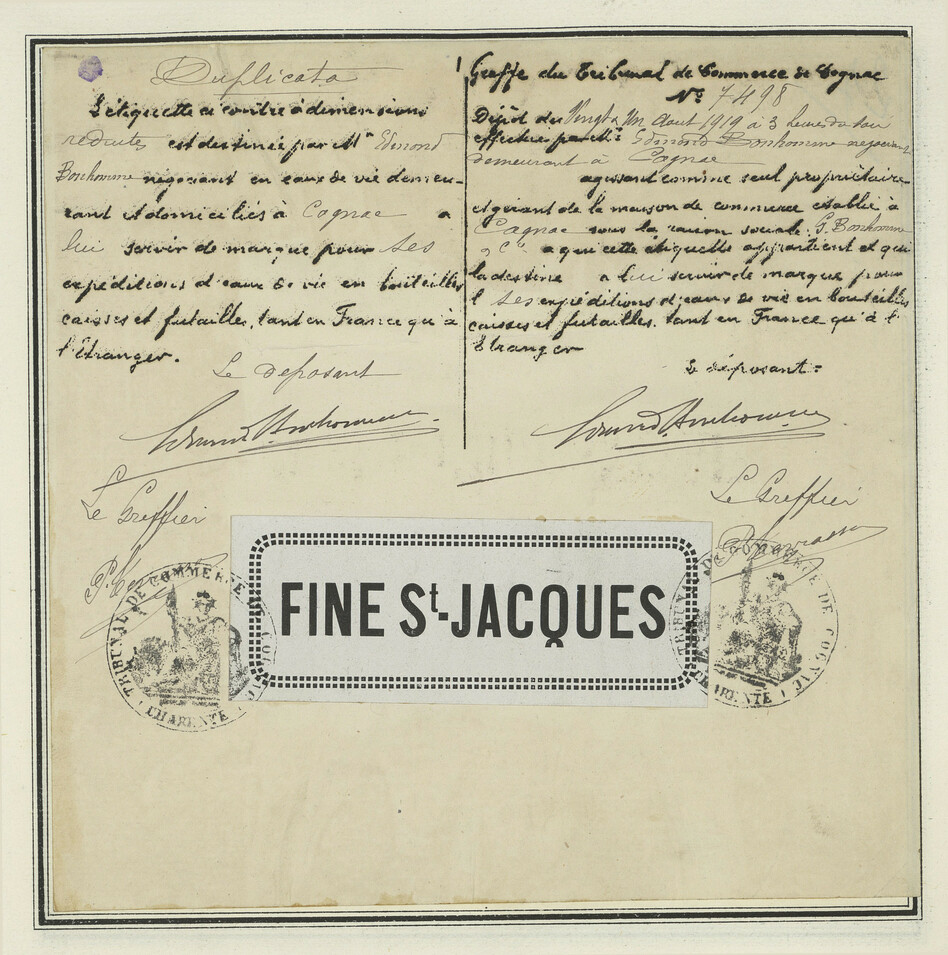 Duplicata
L'étiquette ci contre à dimensions
réduites est destinée par Mr Edmond
Bonhomme négociant en eaux de vie demeu-
rant et domiciliés à Cognac a
lui servir de marque pour ses
expéditions d'eaux de vie en bouteilles
caisses et futailles, tant en France qu'à
l'Etranger.
Le déposant
Le Greffier
Greffe du Tribunal de Commerce de Cognac
No 7498
Dépôt du Vingt & Un Aout 1919 à 3 heures du soir
effectué par Mr Edmond Bonhomme négociant
demeurant à Cognac
agissant comme seul propriétaire
et gérant de la maison de commerce établie à
Cognac sous la raison sociale: G. Bonhomme
& Cie a qui cette étiquette appartient et qui
la destine a lui servir de marque pour
ses expéditions d'eaux de vie en bouteilles
caisses et futailles. tant en France qu'à l'
Etranger
Le déposant:
Le Greffier
FINE St-JACQUES
TRIBUNAL DE COMMERCE
CHARENTE
TRIBUNAL DE COMMERCE DE COGNAC
CHARENTE